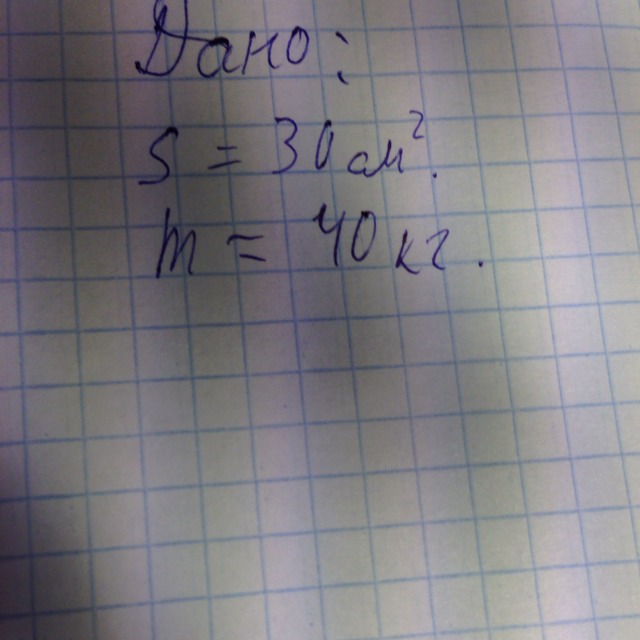 Дано:
S = 30 см².
m = 40 кг.